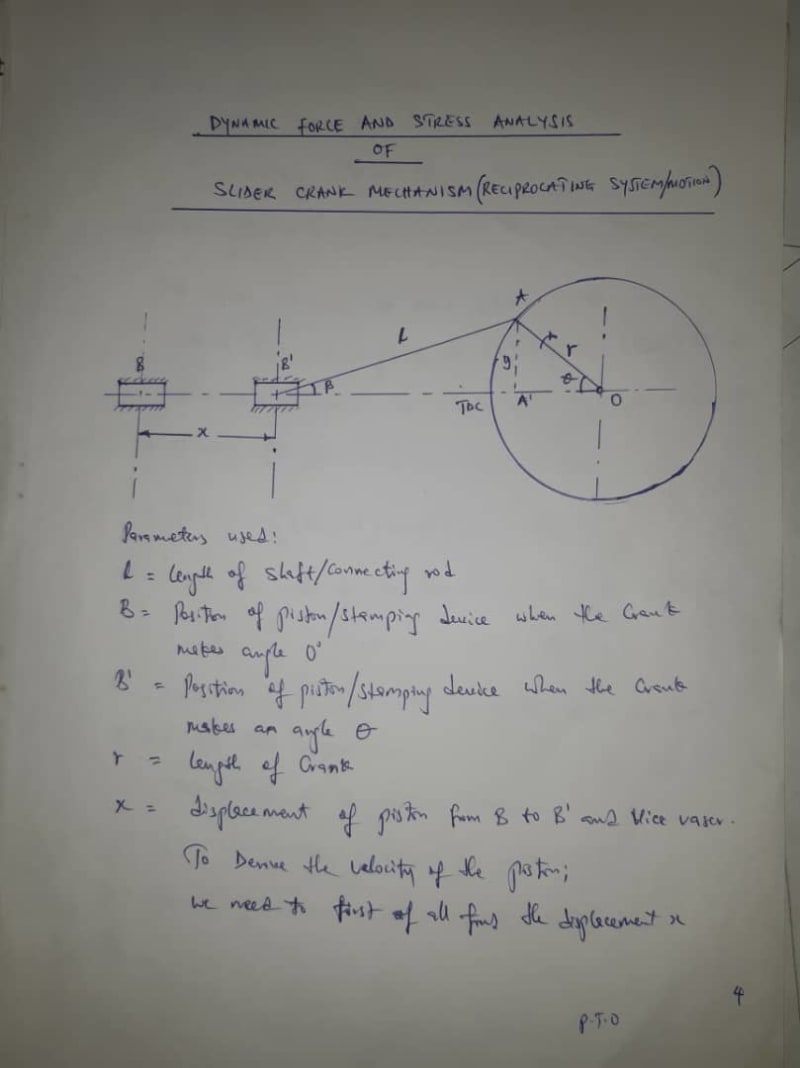 DYNAMIC FORCE AND STRESS ANALYSIS
OF
SLIDER CRANK MECHANISM (RECIPROCATING SYSTEM/MOTION)
A
L
r
B
B'
β
y
θ
TDC
A'
O
x
Parameters used:
L = Length of shaft/Connecting rod
B = Position of piston/stamping device when the Crank
makes angle 0°
B' = Position of piston/stamping device when the Crank
makes an angle θ
r = Length of Crank
x = displacement of piston from B to B' and Vice vaser.
To Derive the velocity of the piston;
we need to first of all find the displacement x
4
P.T.O